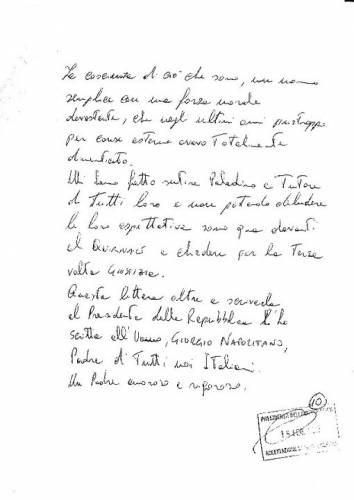 La coscienza di ciò che sono, un uomo
semplice con una forza morale
devastante, che negli ultimi anni purtroppo
per cause esterne avevo Totalmente
dimenticato.
Mi hanno fatto sentire Paladino e Tutore
di Tutti loro e non potendo deludere
le loro aspettative sono qua davanti
al QUIRINALE e chiedere per la Terza
volta GIUSTIZIA.
Questa lettera oltre a scriverla
al Presidente della Repubblica l'ho
scritta all'Uomo, GIORGIO NAPOLITANO,
Padre di Tutti noi Italiani.
Un Padre amoroso e rigoroso.
10